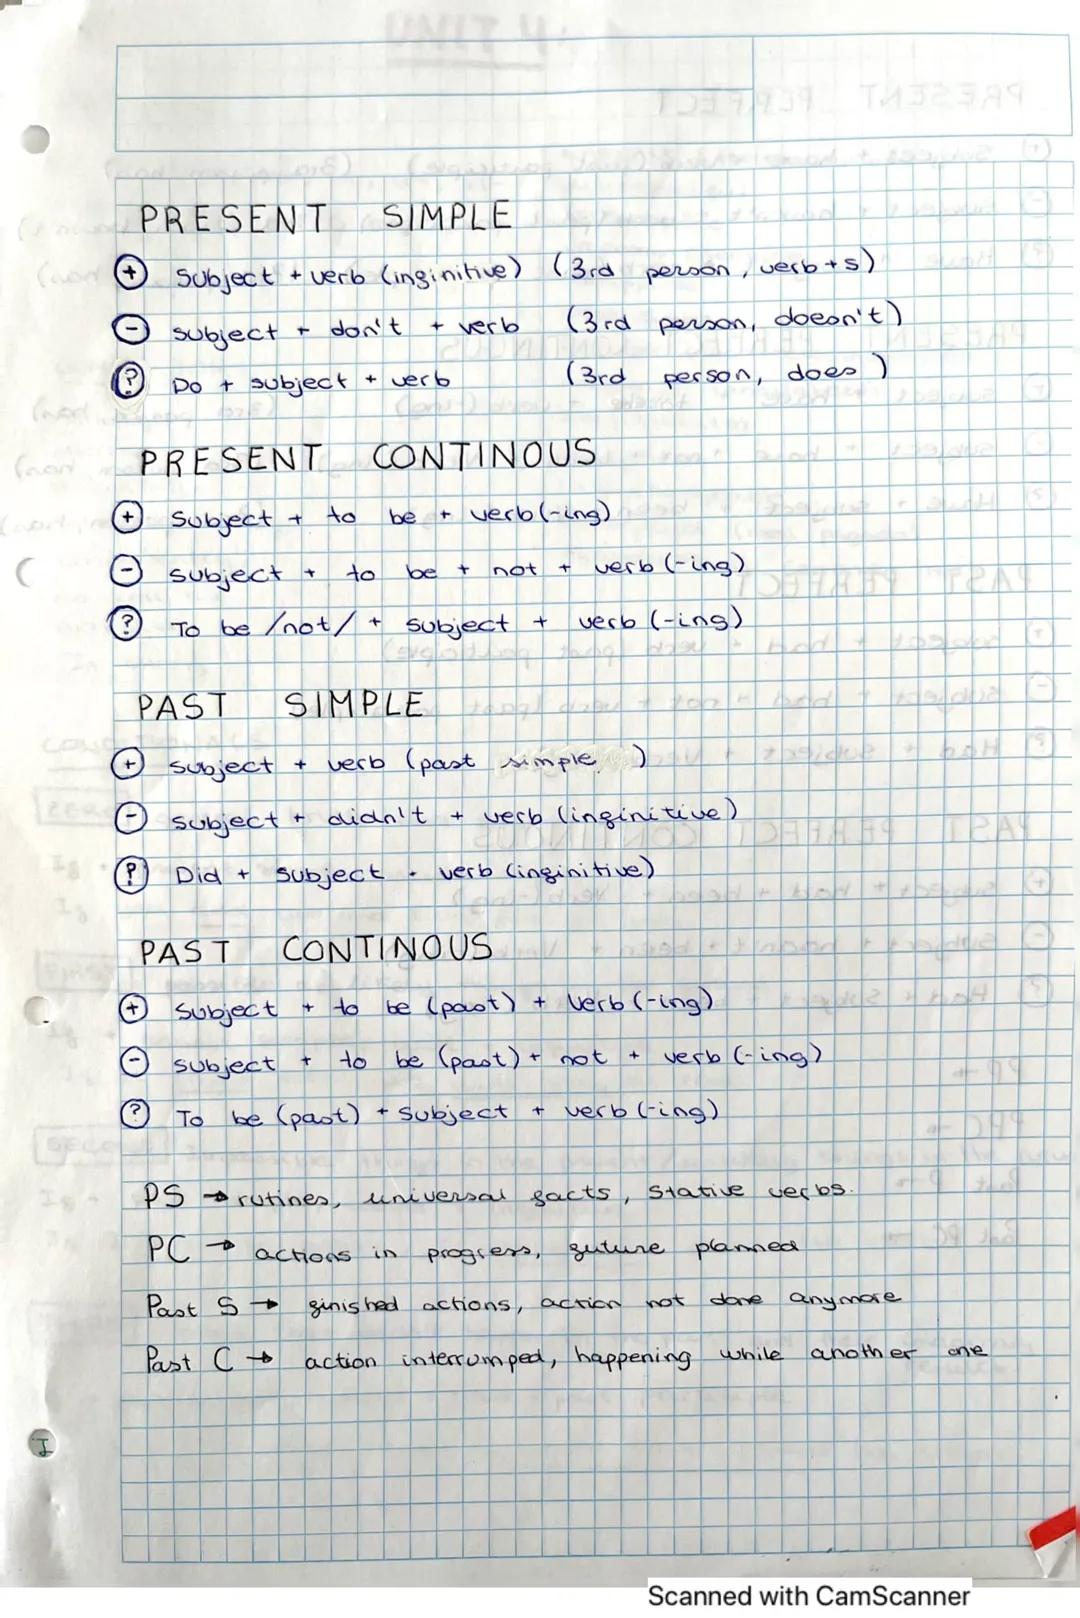 PRESENT SIMPLE
(+) Subject + verb (infinitive) (3rd person, verb+s)
(-) subject + don't + verb (3rd person, doesn't)
(?) Do + subject + verb (3rd person, does)
PRESENT CONTINOUS
(+) Subject + to be + verb (-ing)
(-) subject + to be + not + verb (-ing)
(?) To be /not/ + subject + verb (-ing)
PAST SIMPLE
(+) subject + verb (past simple)
(-) subject + didn't + verb (infinitive)
(?) Did + subject + verb (infinitive)
PAST CONTINOUS
(+) Subject + to be (past) + verb (-ing)
(-) subject + to be (past) + not + verb (-ing)
(?) To be (past) + subject + verb (-ing)
PS → rutines, universal facts, stative verbs.
PC → actions in progress, future planned
Past S → finished actions, action not done anymore
Past C → action interrumped, happening while another one
Scanned with CamScanner